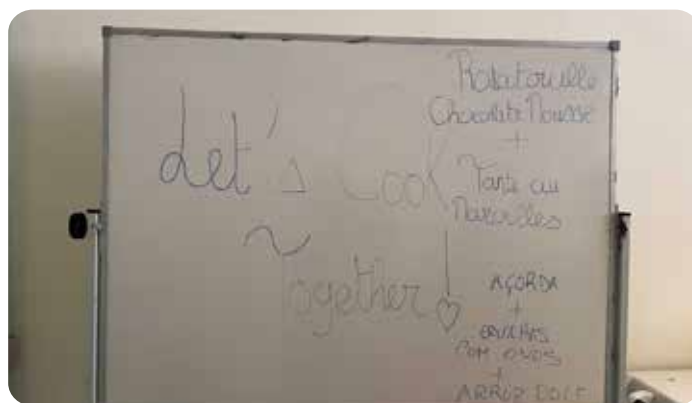 Let's Cook
~
Together! ♡
Ratatouille
Chocolate Mousse
+
Tarte au
Maroilles
AÇORDA
+
ERVILHAS
COM OVOS
+
ARROZ DOCE